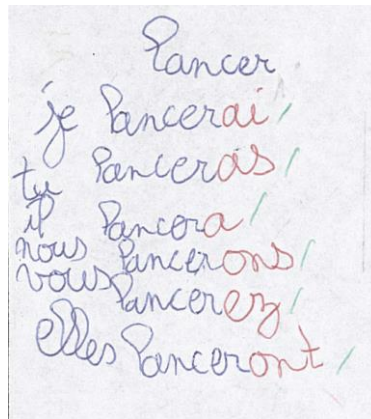 Lancer
je lancerai
tu lanceras
il lancera
nous lancerons
vous lancerez
elles lanceront